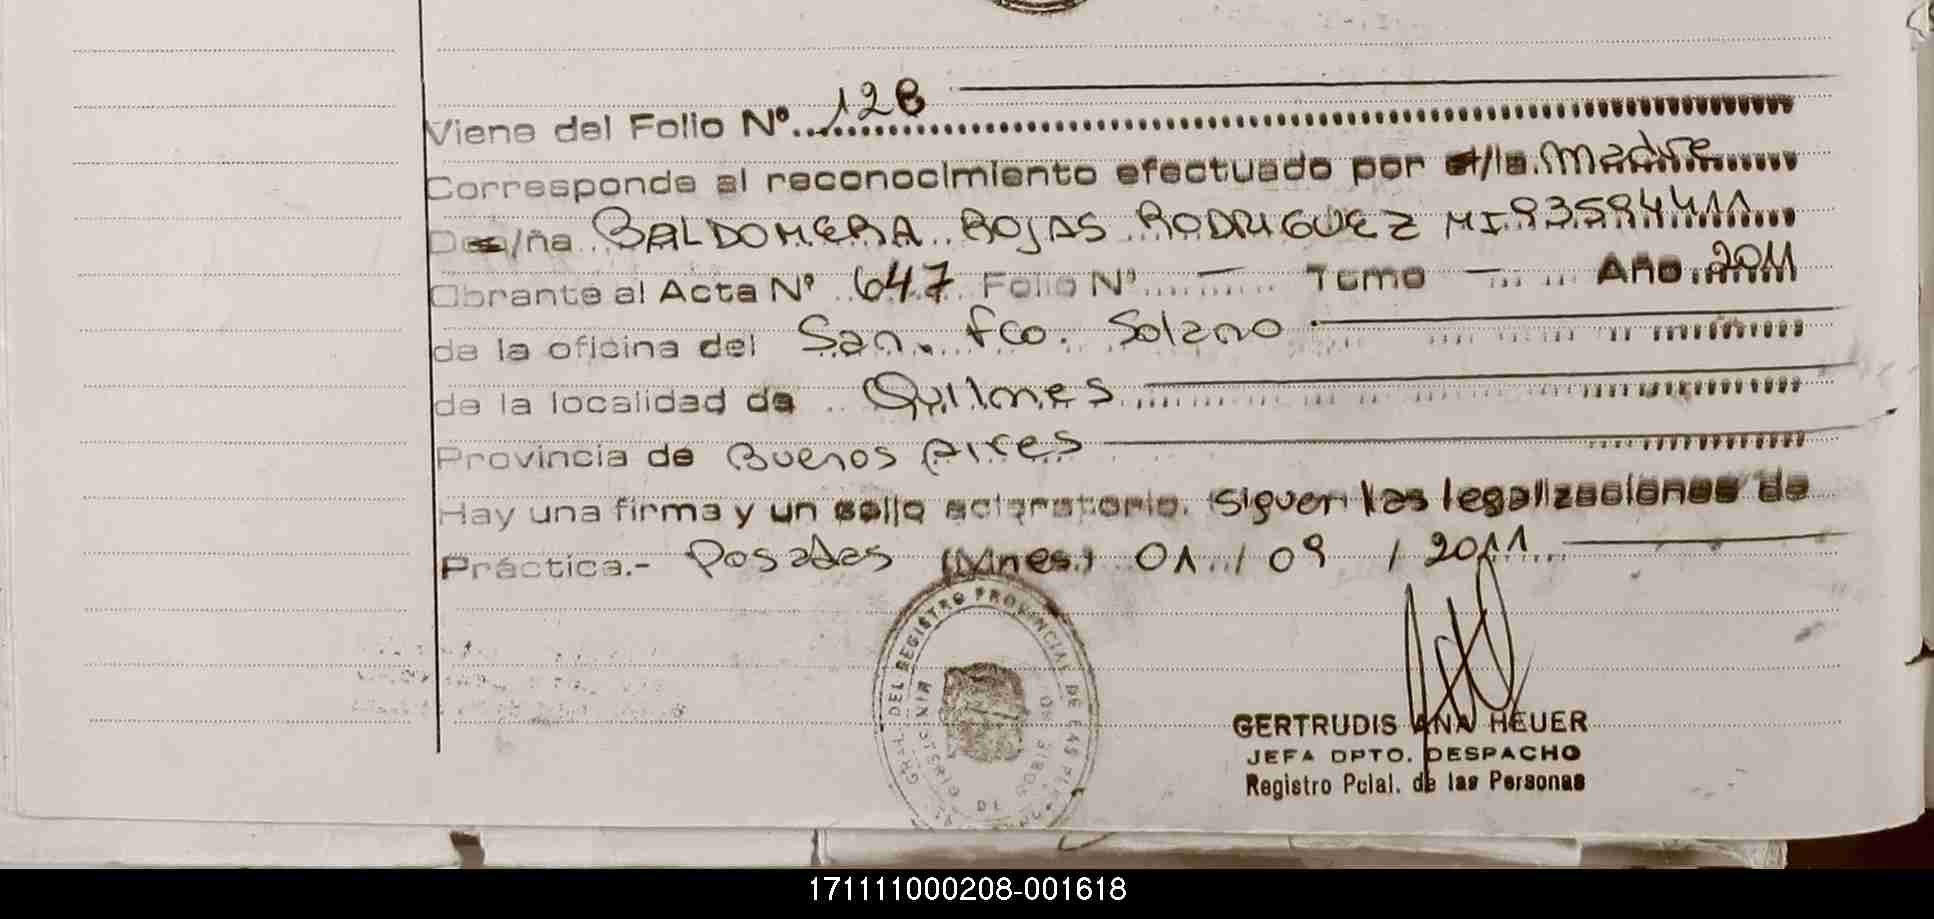 Viene del Folio Nº 128
Corresponde al reconocimiento efectuado por el/la madre
Don/ña BALDOMERA ROJAS RODRIGUEZ MI 93594411
Obrante al Acta Nº 647 Folio Nº — Tomo — Año 2011
de la oficina del San. Fco. Solano
de la localidad de Quilmes
Provincia de Buenos Aires
Hay una firma y un sello aclaratorio. Siguen las legalizaciones de
Práctica.- Posadas (Mnes) 01 / 09 / 2011
DEL REGISTRO PROVINCIAL DE LAS
GERTRUDIS ANA HEUER
JEFA DPTO. DESPACHO
Registro Pcial. de las Personas
171111000208-001618